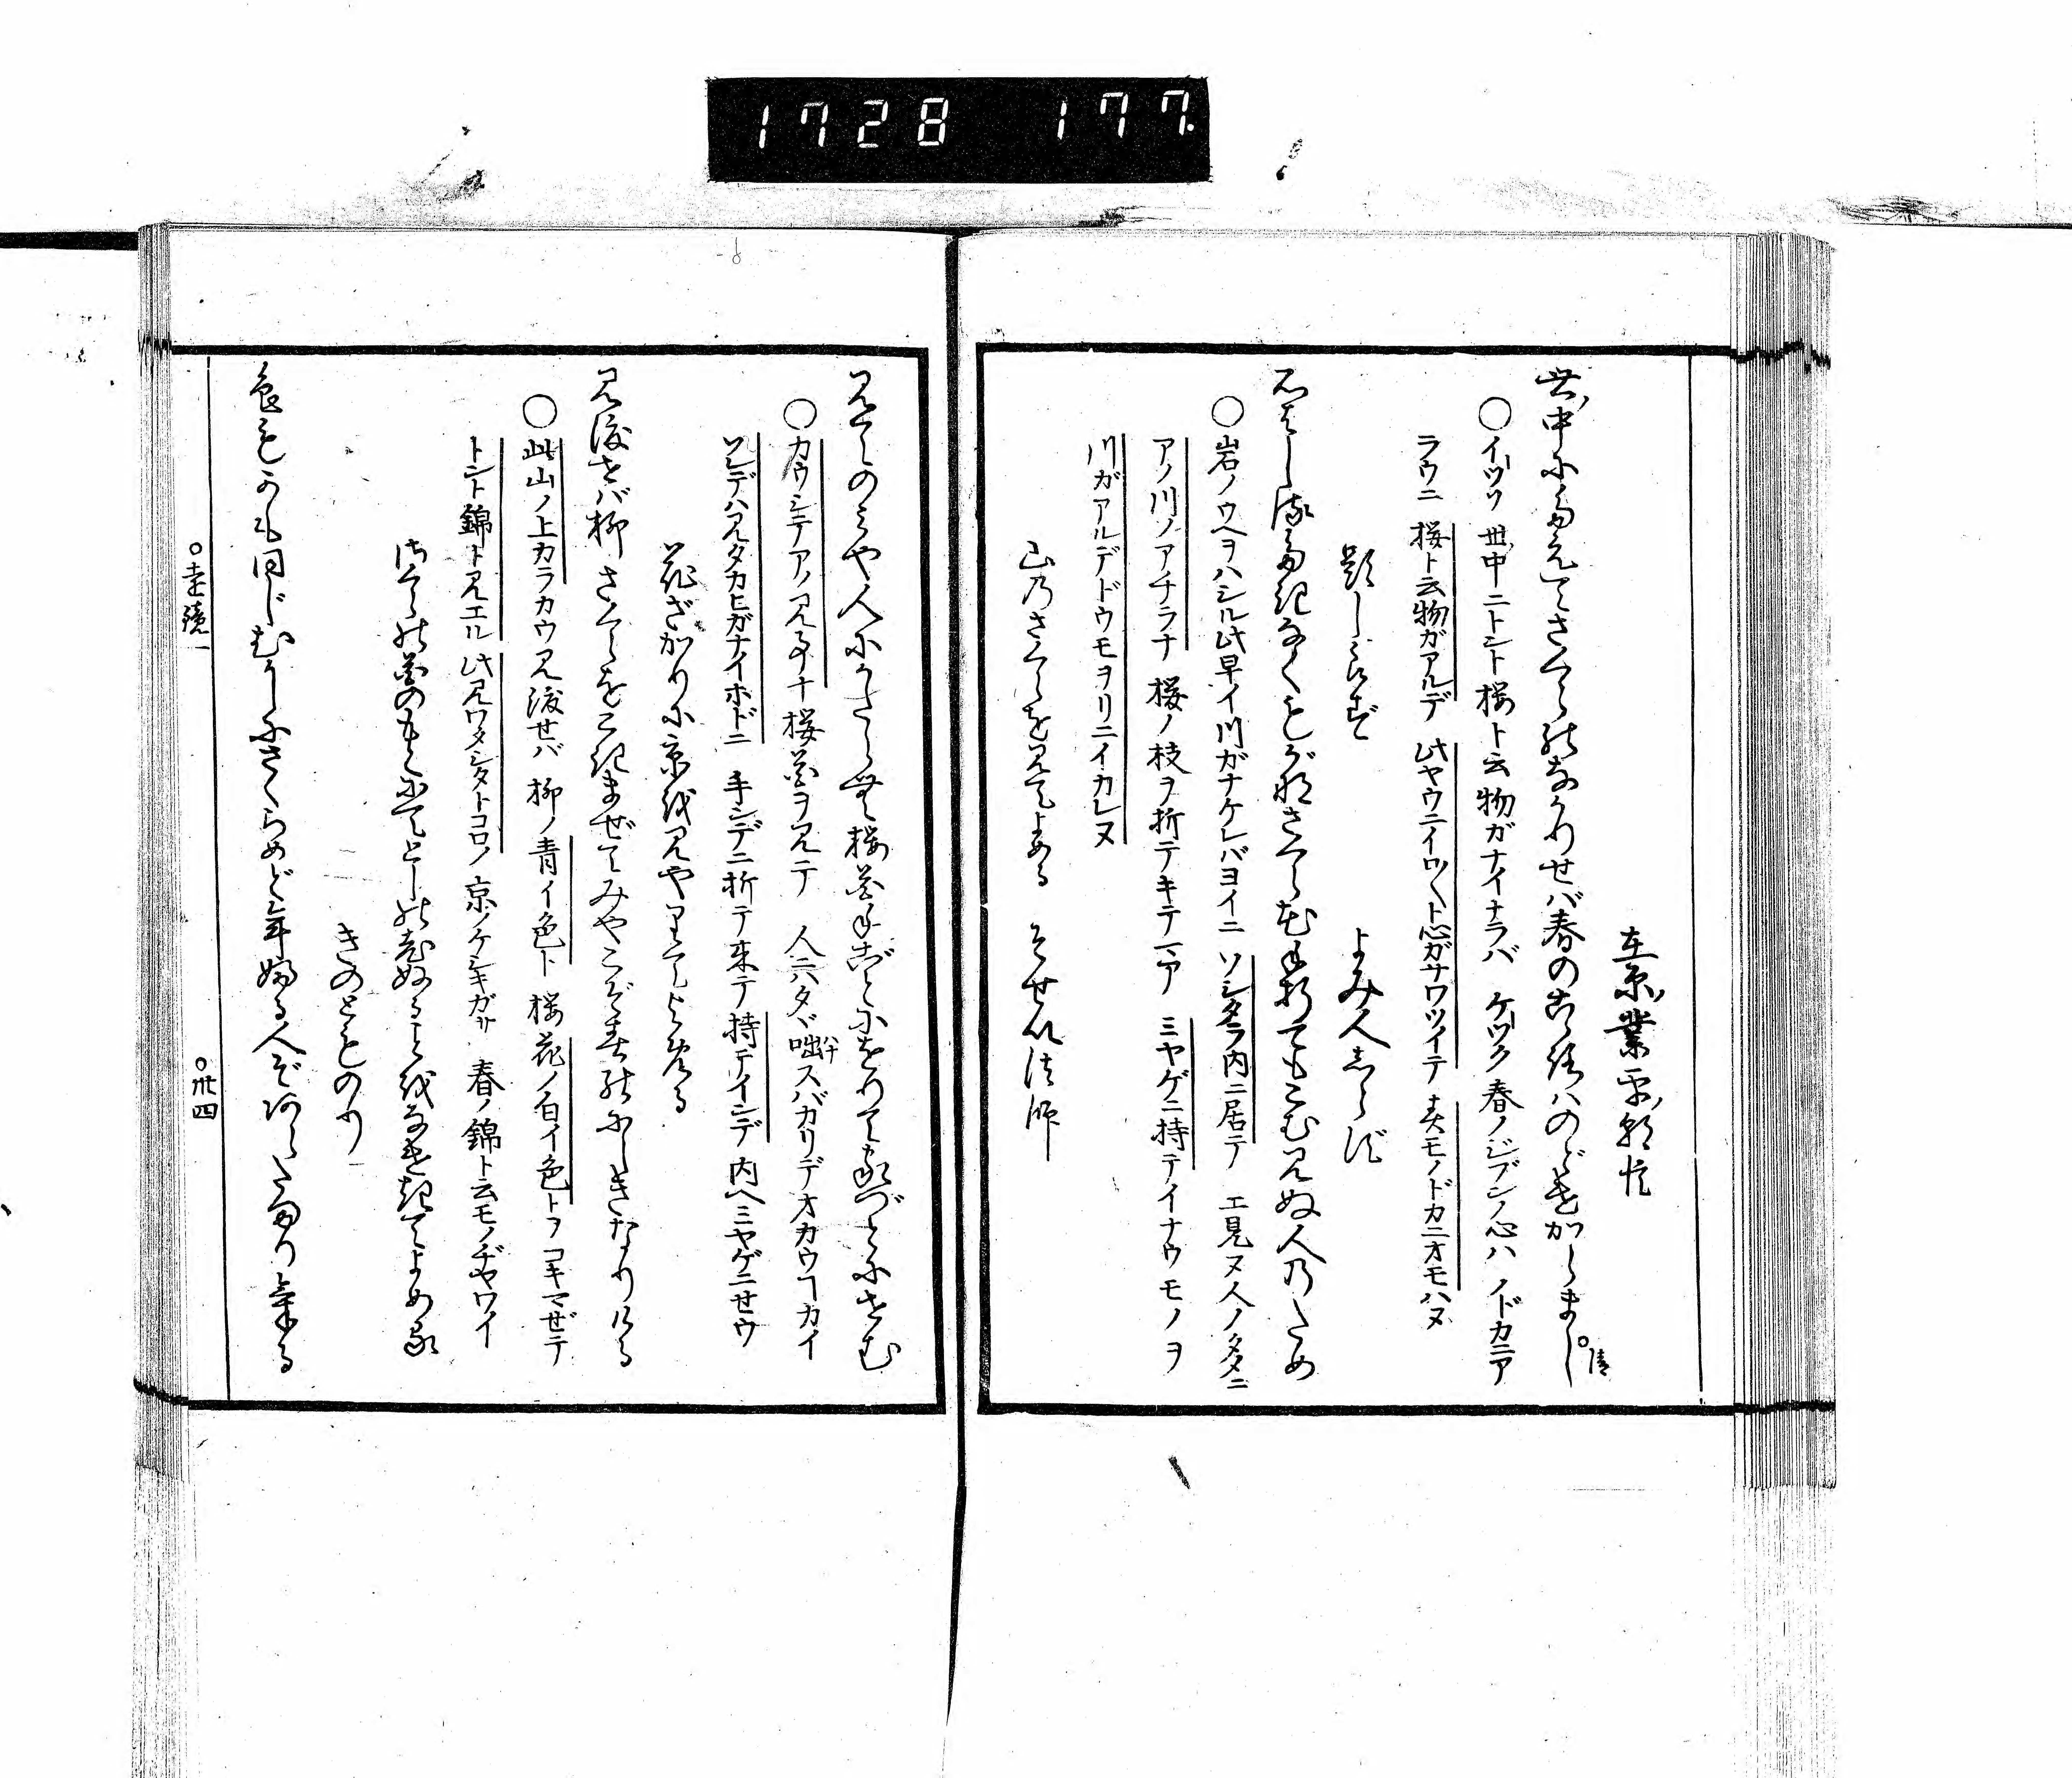 1728 177.
在原ノ業平ノ朝臣
世ノ中にたえてさくらのなかりせば春のこゝろハのどけからまし
○清
○イッソ 世ノ中ニトント 桜ト云物ガナイナラバ ケツク 春ノジブンノ心ハ ノドカニア
ラウニ 桜ト云物ガアルデ 此ヤウニイロ〳〵ト心ガサワツイテ 春モノドカニオモハヌ
題しらず よみ人しらず
石ばしる瀧なくもがなさくら花手折てもこむ見ぬ人乃ため
○岩ノウヘヲハシル此早イ川ガナケレバヨイニ ソシタラ内ニ居テ エ見ヌ人ノタメニ
アノ川ノアチラナ 桜ノ枝ヲ折テキテマア ミヤゲニ持テイナウモノヲ
川ガアルデドウモヲリニイカレヌ
山乃さくらを見てよめる そせい法師
見てのみや人にかたらむ桜花手ごとにをりて家づとにせむ
○カウシテアノ見事ナ 桜花ヲ見テ 人ニハタヾ咄スバカリデオカウヿカイ
ハナ
ソレデハ見タカヒガナイホドニ 手ンデニ折テ来テ 持テインデ 内ヘミヤゲニセウ
花ざかりに京を見やりてよめる
見渡せバ柳さくらをこきまぜてみやこぞ春のにしきなりける
○此山ノ上カラカウ見渡セバ 柳ノ青イ色ト 桜花ノ白イ色トヲ コキマゼテ
トント錦ト見エル 此見ワタシタトコロノ 京ノケシキガサ 春ノ錦ト云モノヂヤワイ
さくらの花のもとにてとしの老ぬることをなげきてよめる
きのとものり
色も香も同じむかしにさくらめど年ふる人ぞあらたまりける
○壱ノ遠一
○卅四